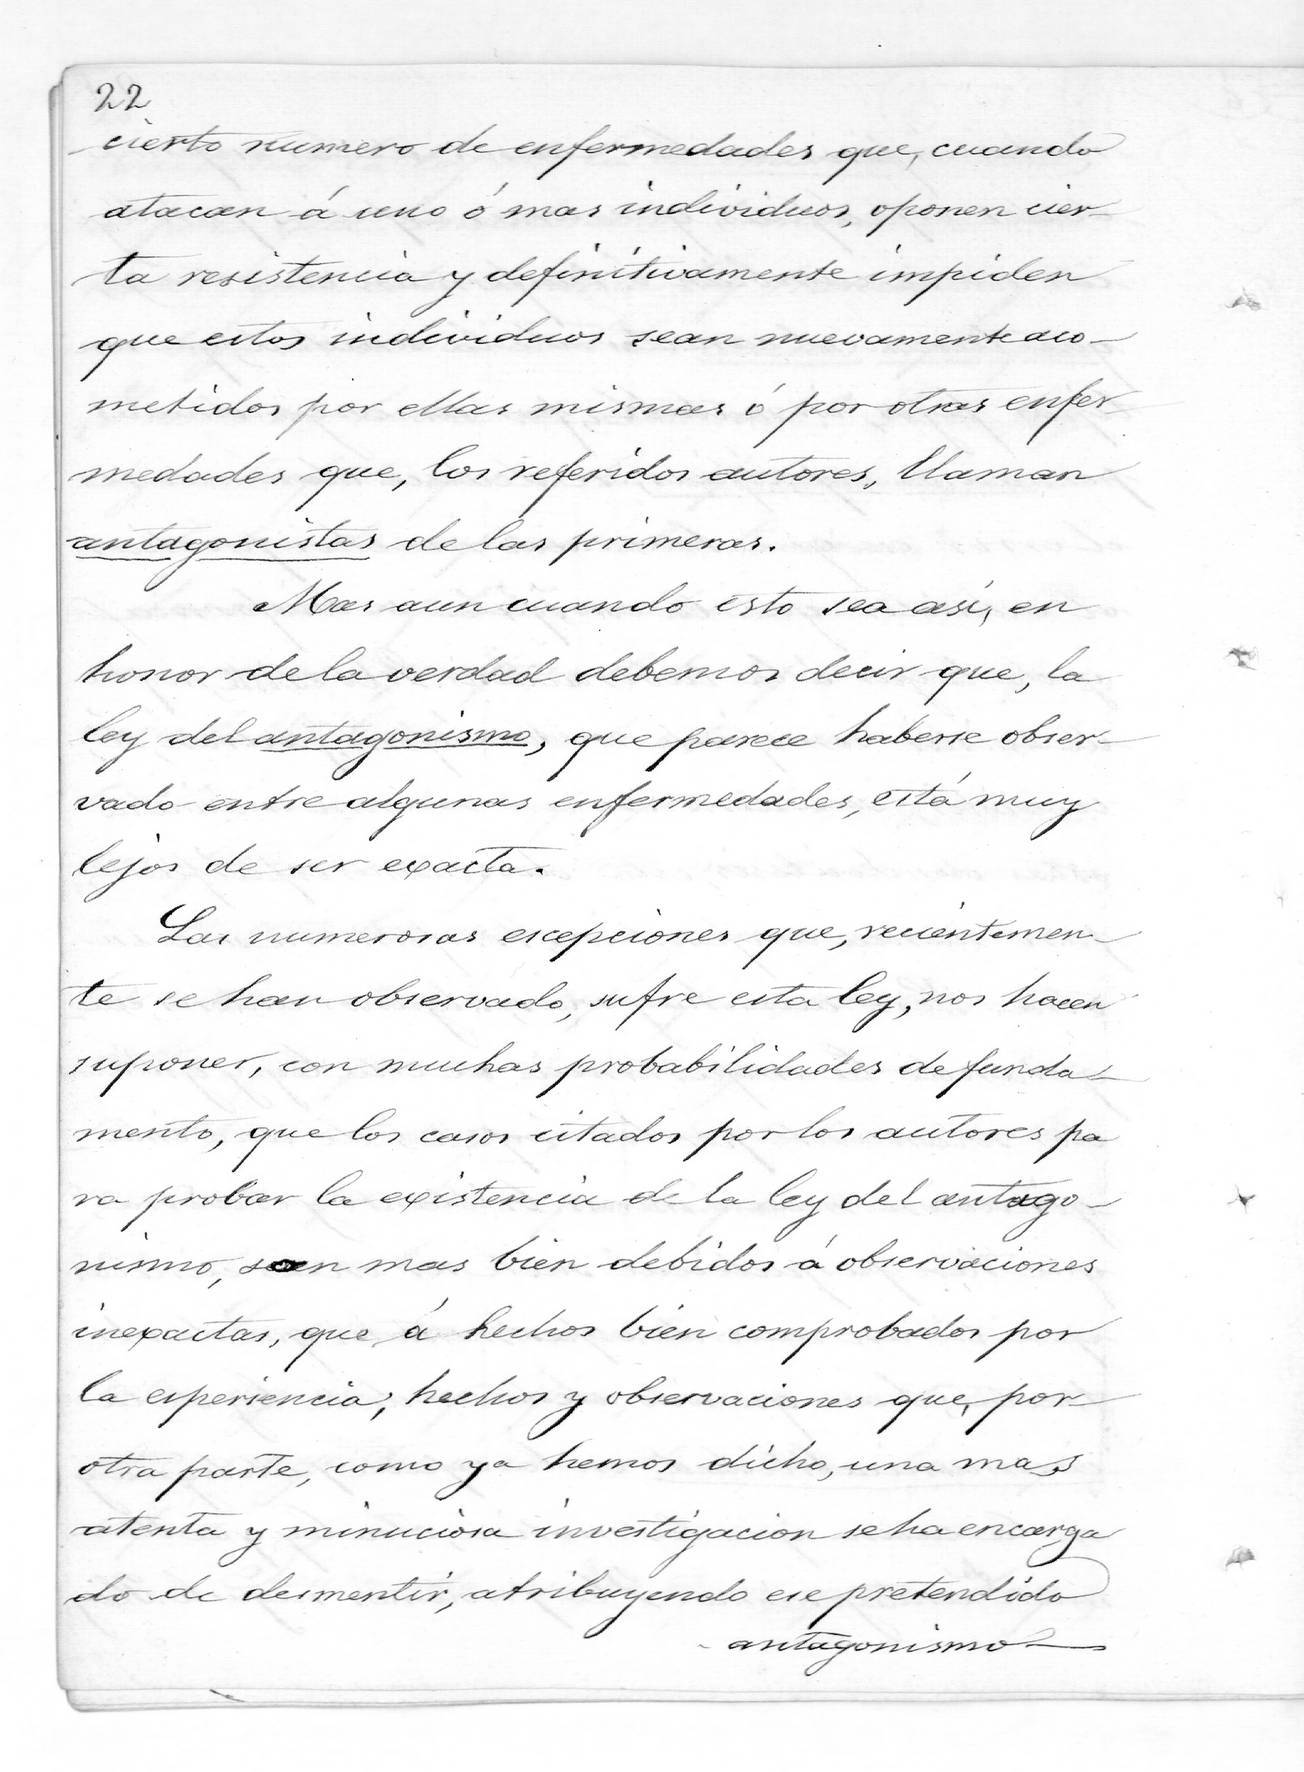 22
cierto numero de enfermedades que, cuando
atacan á uno ó mas individuos, oponen cier-
ta resistencia y definitivamente impiden
que estos individuos sean nuevamente aco-
metidos por ellas mismas ó por otras enfer
medades que, los referidos autores, llaman
antagonistas de las primeras.
Mas aun cuando esto sea así, en
honor de la verdad debemos decir que, la
ley del antagonismo, que parece haberse obser-
vado entre algunas enfermedades, está muy
lejos de ser exacta.
Las numerosas escepciones que, recientemen-
te se han observado, sufre esta ley, nos hacen
suponer, con muchas probabilidades de funda-
mento, que los casos citados por los autores pa
ra probar la existencia de la ley del antago-
nismo, son mas bien debidos á observaciones
inexactas, que á hechos bien comprobados por
la esperiencia; hechos y observaciones que, por
otra parte, como ya hemos dicho, una mas
atenta y minuciosa investigacion se ha encarga
do de desmentir, atribuyendo ese pretendido
antagonismo